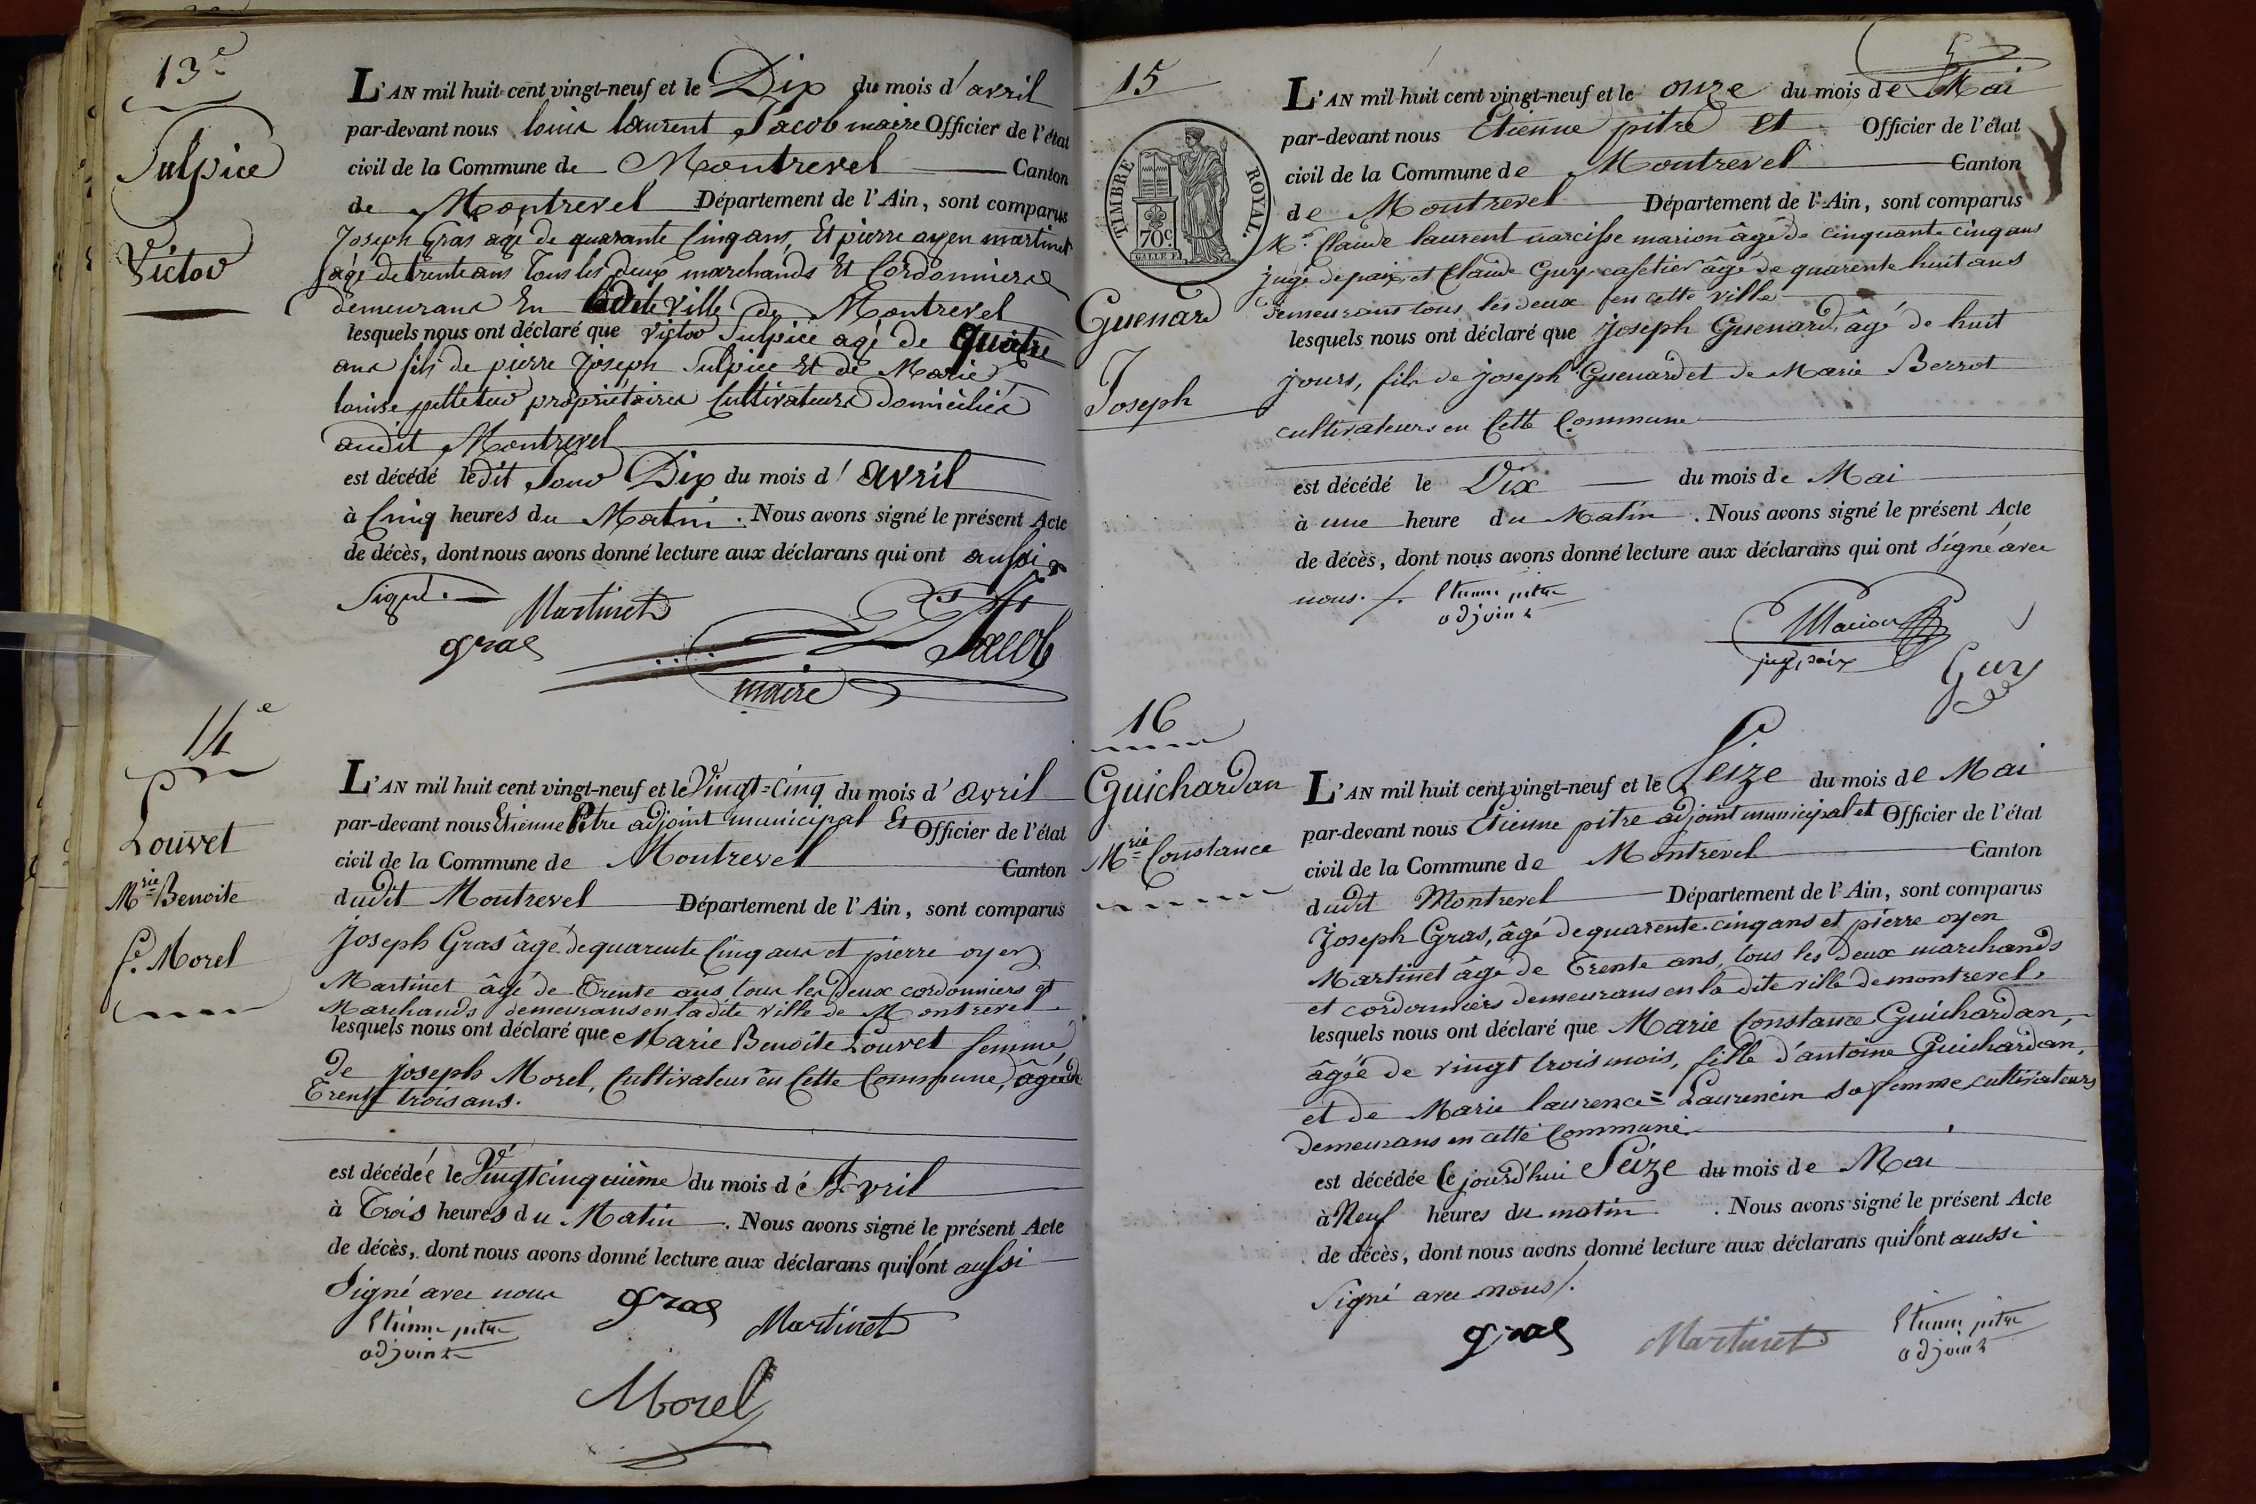 13e
Sulpice
Victor
L'AN mil huit cent vingt-neuf et le Dix du mois d'avril
par-devant nous louis laurent Jacob maire Officier de l'état
civil de la Commune de Montrevel Canton
de Montrevel Département de l'Ain, sont comparus
Joseph Gras agé de quarante Cinq ans, Et pierre oyen martinet
agé de trente ans Tous les deux marchands Et Cordonniers
demeurans En ladite ville de Montrevel
lesquels nous ont déclaré que Victor Sulpice agé de quatre
ans fils de pierre Joseph Sulpice Et de Marie
louise pelletier propriétaires Cultivateurs Domiciliés
audit Montrevel
est décédé ledit Jour Dix du mois d'avril
à Cinq heures du Matin. Nous avons signé le présent Acte
de décès, dont nous avons donné lecture aux déclarans qui ont aussi
signé.
Martinet
gras
Jacob
maire
14e
Louvet
Mrie Benoite
fe. Morel
L'AN mil huit cent vingt-neuf et le Vingt=Cinq du mois d'avril
par-devant nous Etienne Pitre adjoint municipal Et Officier de l'état
civil de la Commune de Montrevel Canton
dudit Montrevel Département de l'Ain, sont comparus
Joseph Gras âgé de quarente Cinq ans et pierre oyen
Martinet âgé de Trente ans tous les deux cordonniers et
Marchands demeurans en ladite ville de Montrevel
lesquels nous ont déclaré que Marie Benoite Louvet femme
de joseph Morel, Cultivateur en Cette Commune, âgée de
Trente trois ans.
est décédée le Vingtcinquième du mois d'Avril
à Trois heures du Matin. Nous avons signé le présent Acte
de décès, dont nous avons donné lecture aux déclarans qui ont aussi
Signé avec nous
gras
Martinet
Etienne pitre
adjoint
Morel
15
TIMBRE ROYAL.
70c
Guenard
Joseph
L'AN mil huit cent vingt-neuf et le onze du mois de Mai
par-devant nous Etienne pitre et Officier de l'état
civil de la Commune de Montrevel Canton
de Montrevel Département de l'Ain, sont comparus
Mr. Claude laurent narcisse marion âgé de cinquante cinq ans
juge de paix, et Claude Guy cafetier âgé de quarente huit ans
demeurans tous les deux en cette ville
lesquels nous ont déclaré que joseph Guenard, âgé de huit
jours, fils de joseph Guenard et de Marie Berrot
cultivateurs en Cette Commune
est décédé le Dix du mois de Mai
à une heure du Matin. Nous avons signé le présent Acte
de décès, dont nous avons donné lecture aux déclarans qui ont signé avec
nous.
Etienne pitre
adjoint
Marion
juge paix
Guy
16
Guichardan
Mrie Constance
L'AN mil huit cent vingt-neuf et le Seize du mois de Mai
par-devant nous Etienne pitre adjoint municipal et Officier de l'état
civil de la Commune de Montrevel Canton
dudit Montrevel Département de l'Ain, sont comparus
Joseph Gras, âgé de quarente cinq ans et pierre oyen
Martinet âgé de Trente ans, tous les deux marchands
et cordonniers demeurans en la dite ville de montrevel.
lesquels nous ont déclaré que Marie Constance Guichardan,
âgée de vingt trois mois, fille d'antoine Guichardan,
et de Marie laurence=Laurencin sa femme cultivateurs
demeurans en cette Commune.
est décédée Cejourd'hui Seize du mois de Mai
à Neuf heures du matin. Nous avons signé le présent Acte
de décès, dont nous avons donné lecture aux déclarans qui ont aussi
signé avec nous.
gras
Martinet
Etienne pitre
adjoint